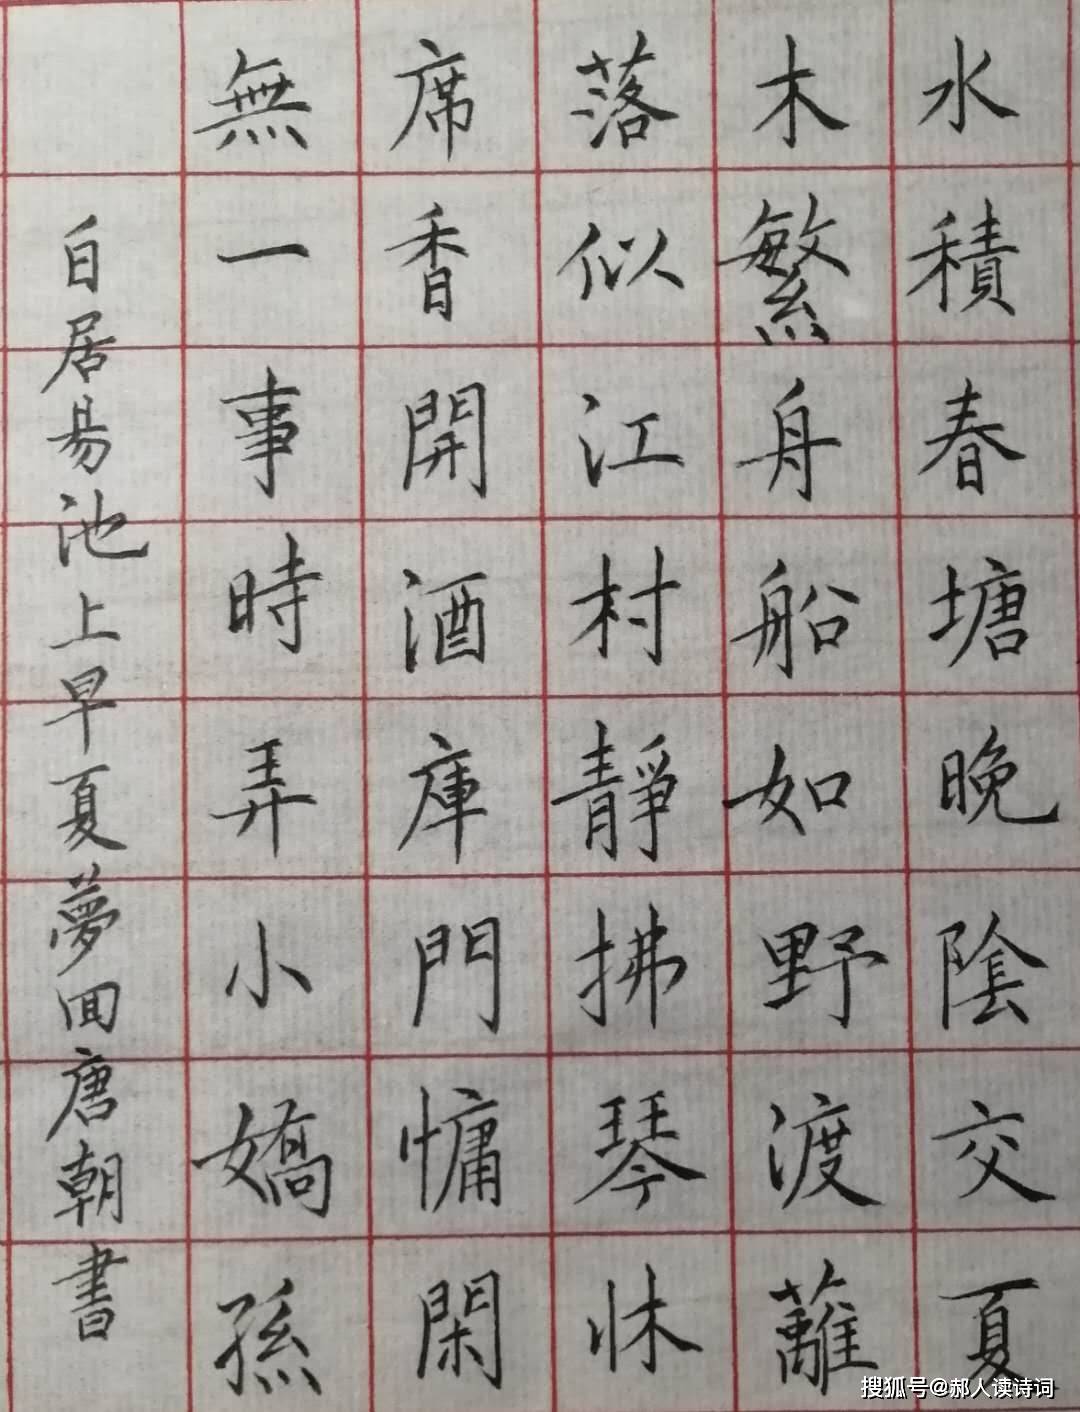 水積春塘晚陰交夏
木繁舟船如野渡蘺
落似江村靜拂琴牀
席香開酒庫門慵閑
無一事時弄小嬌孫
白居易池上早夏夢回唐朝書
搜狐号@郝人读诗词